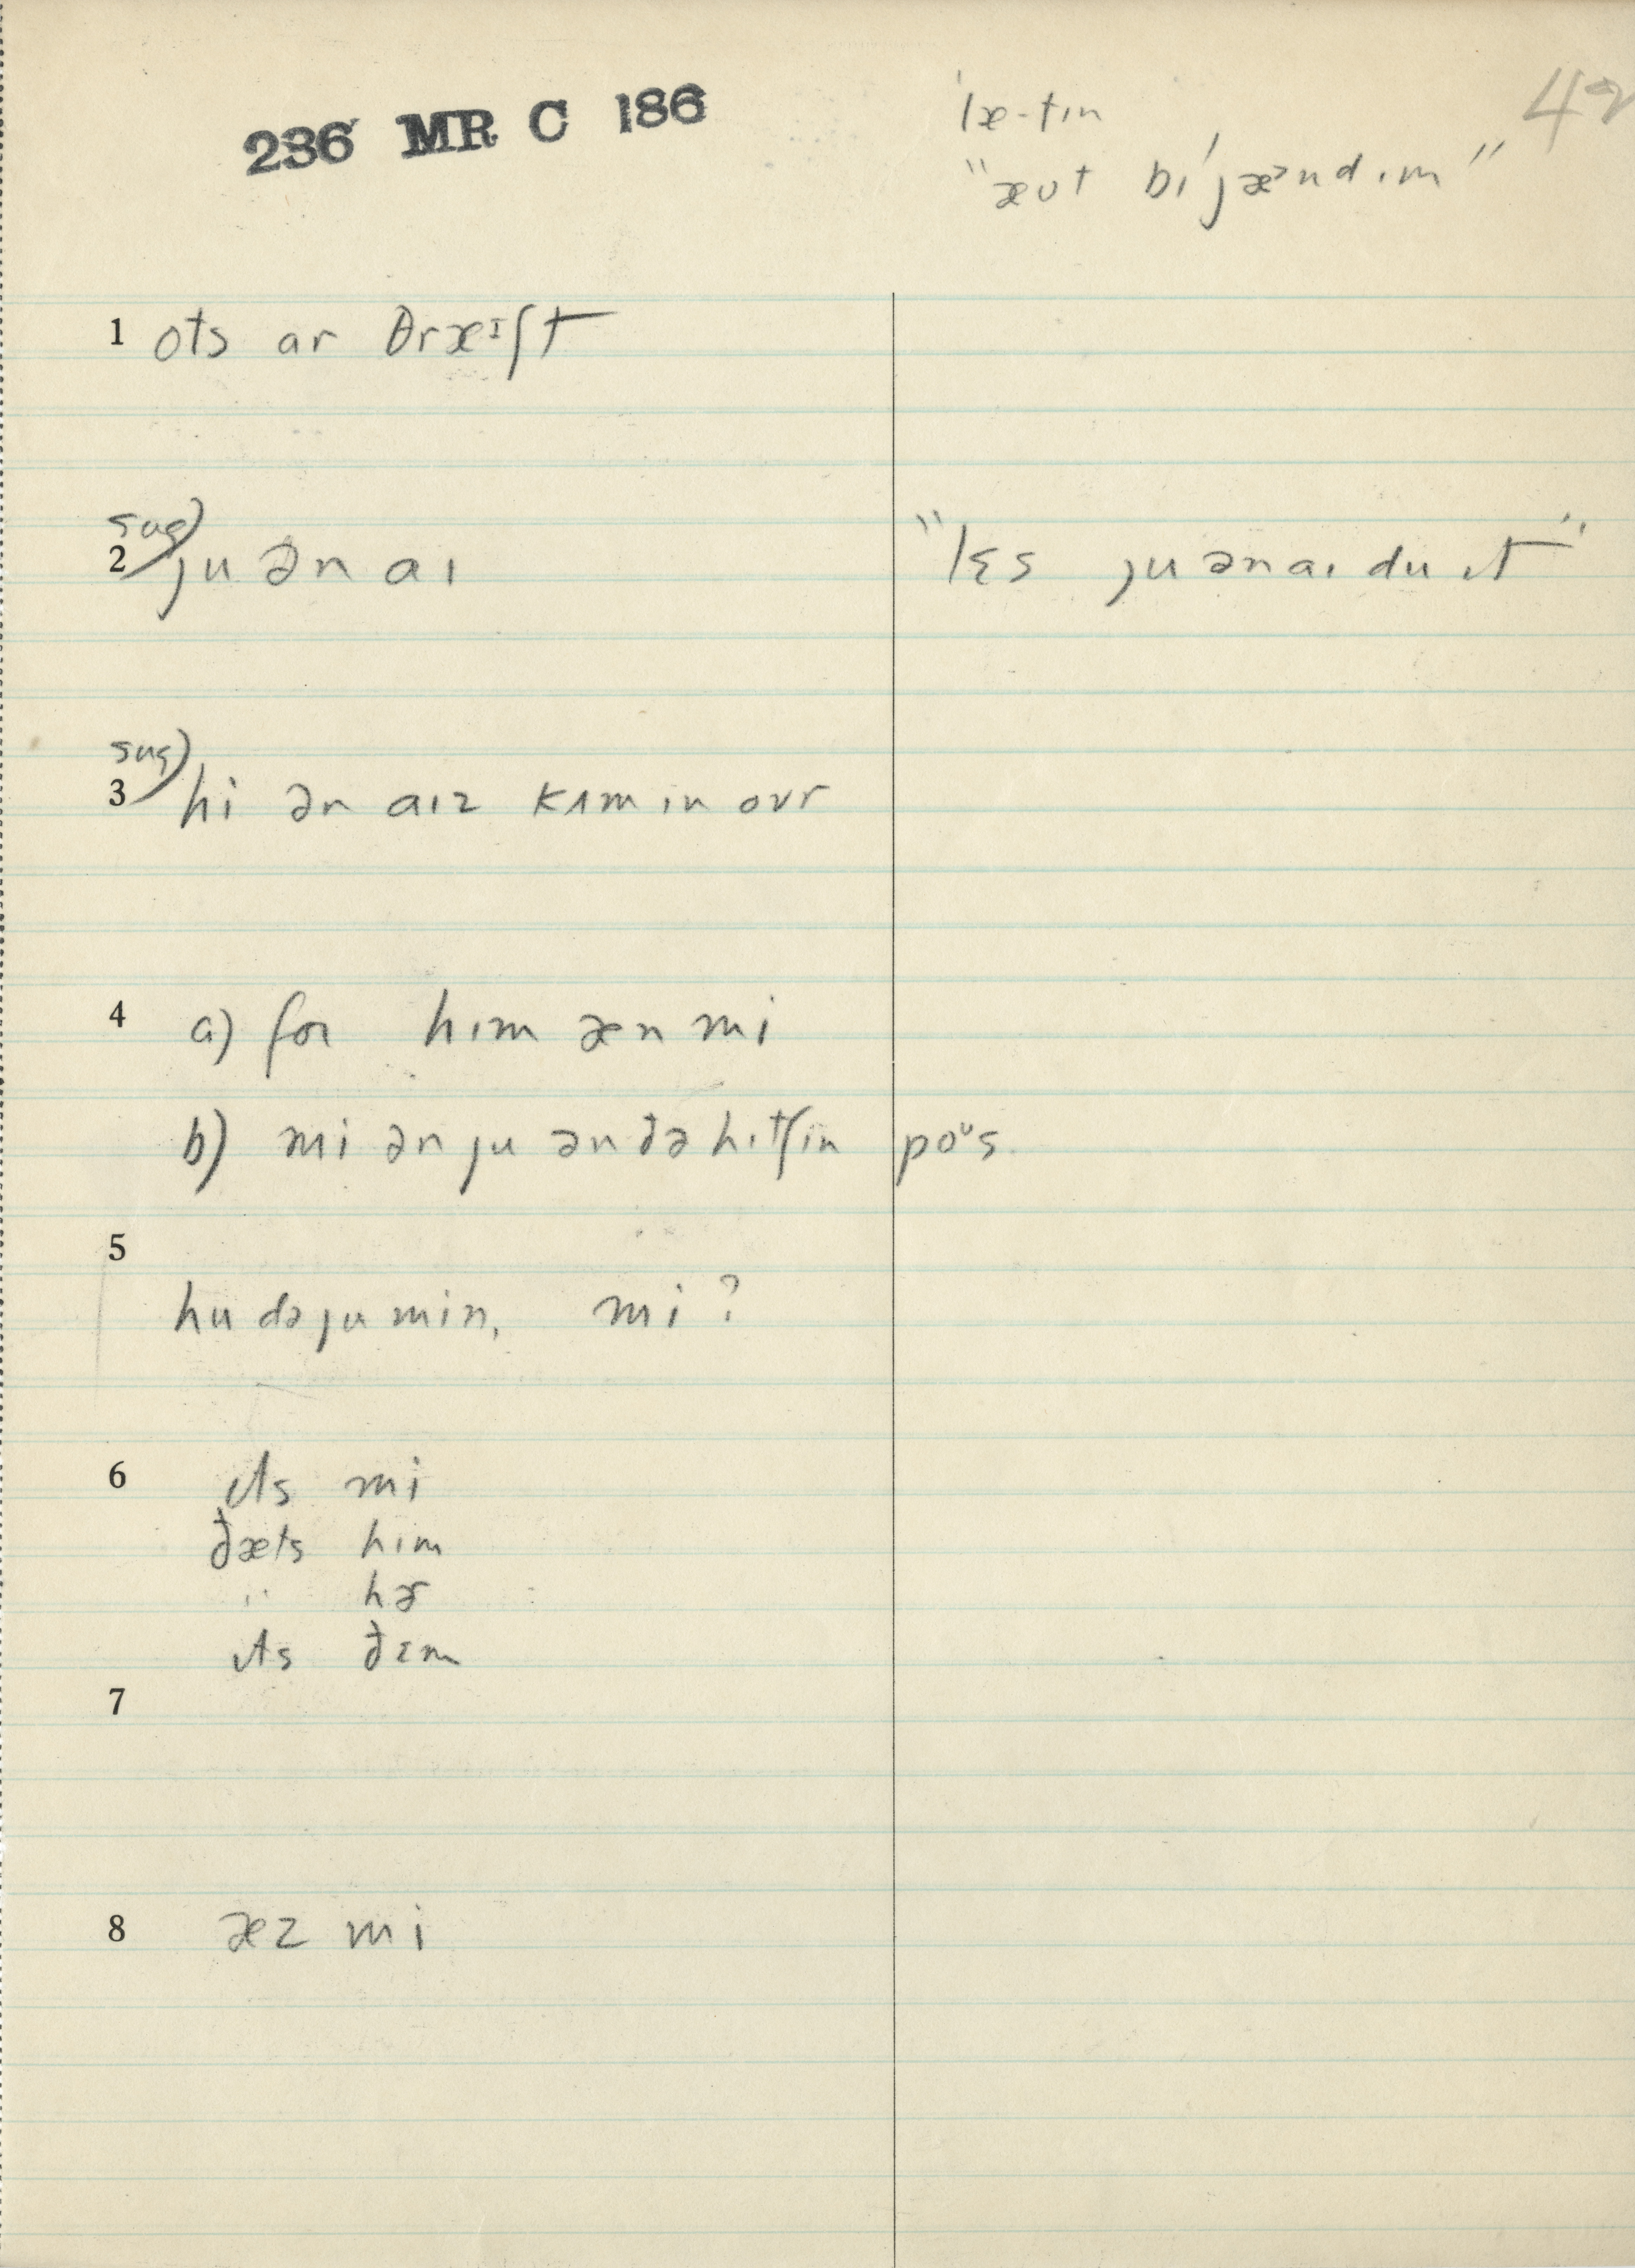 236 MR C 186
ˈlæ-tɪn 42
"æʊt bɪˈjæᵊndɪm"
1 ots ar θræᶦʃt
sug)
2 ju ən aɪ "lɛs ju ən aɪ du ɪt"
sug)
3 hi ən aɪz kʌmɪn ovr
4 a) for hɪm æn mi
b) mi ən ju ən ðə hɪtʃin poᵘs
5
hu də ju min, mi?
6 ɪts mi
ðæts hɪm
" hɚ
ɪts ðɛm
7
8 æz mi